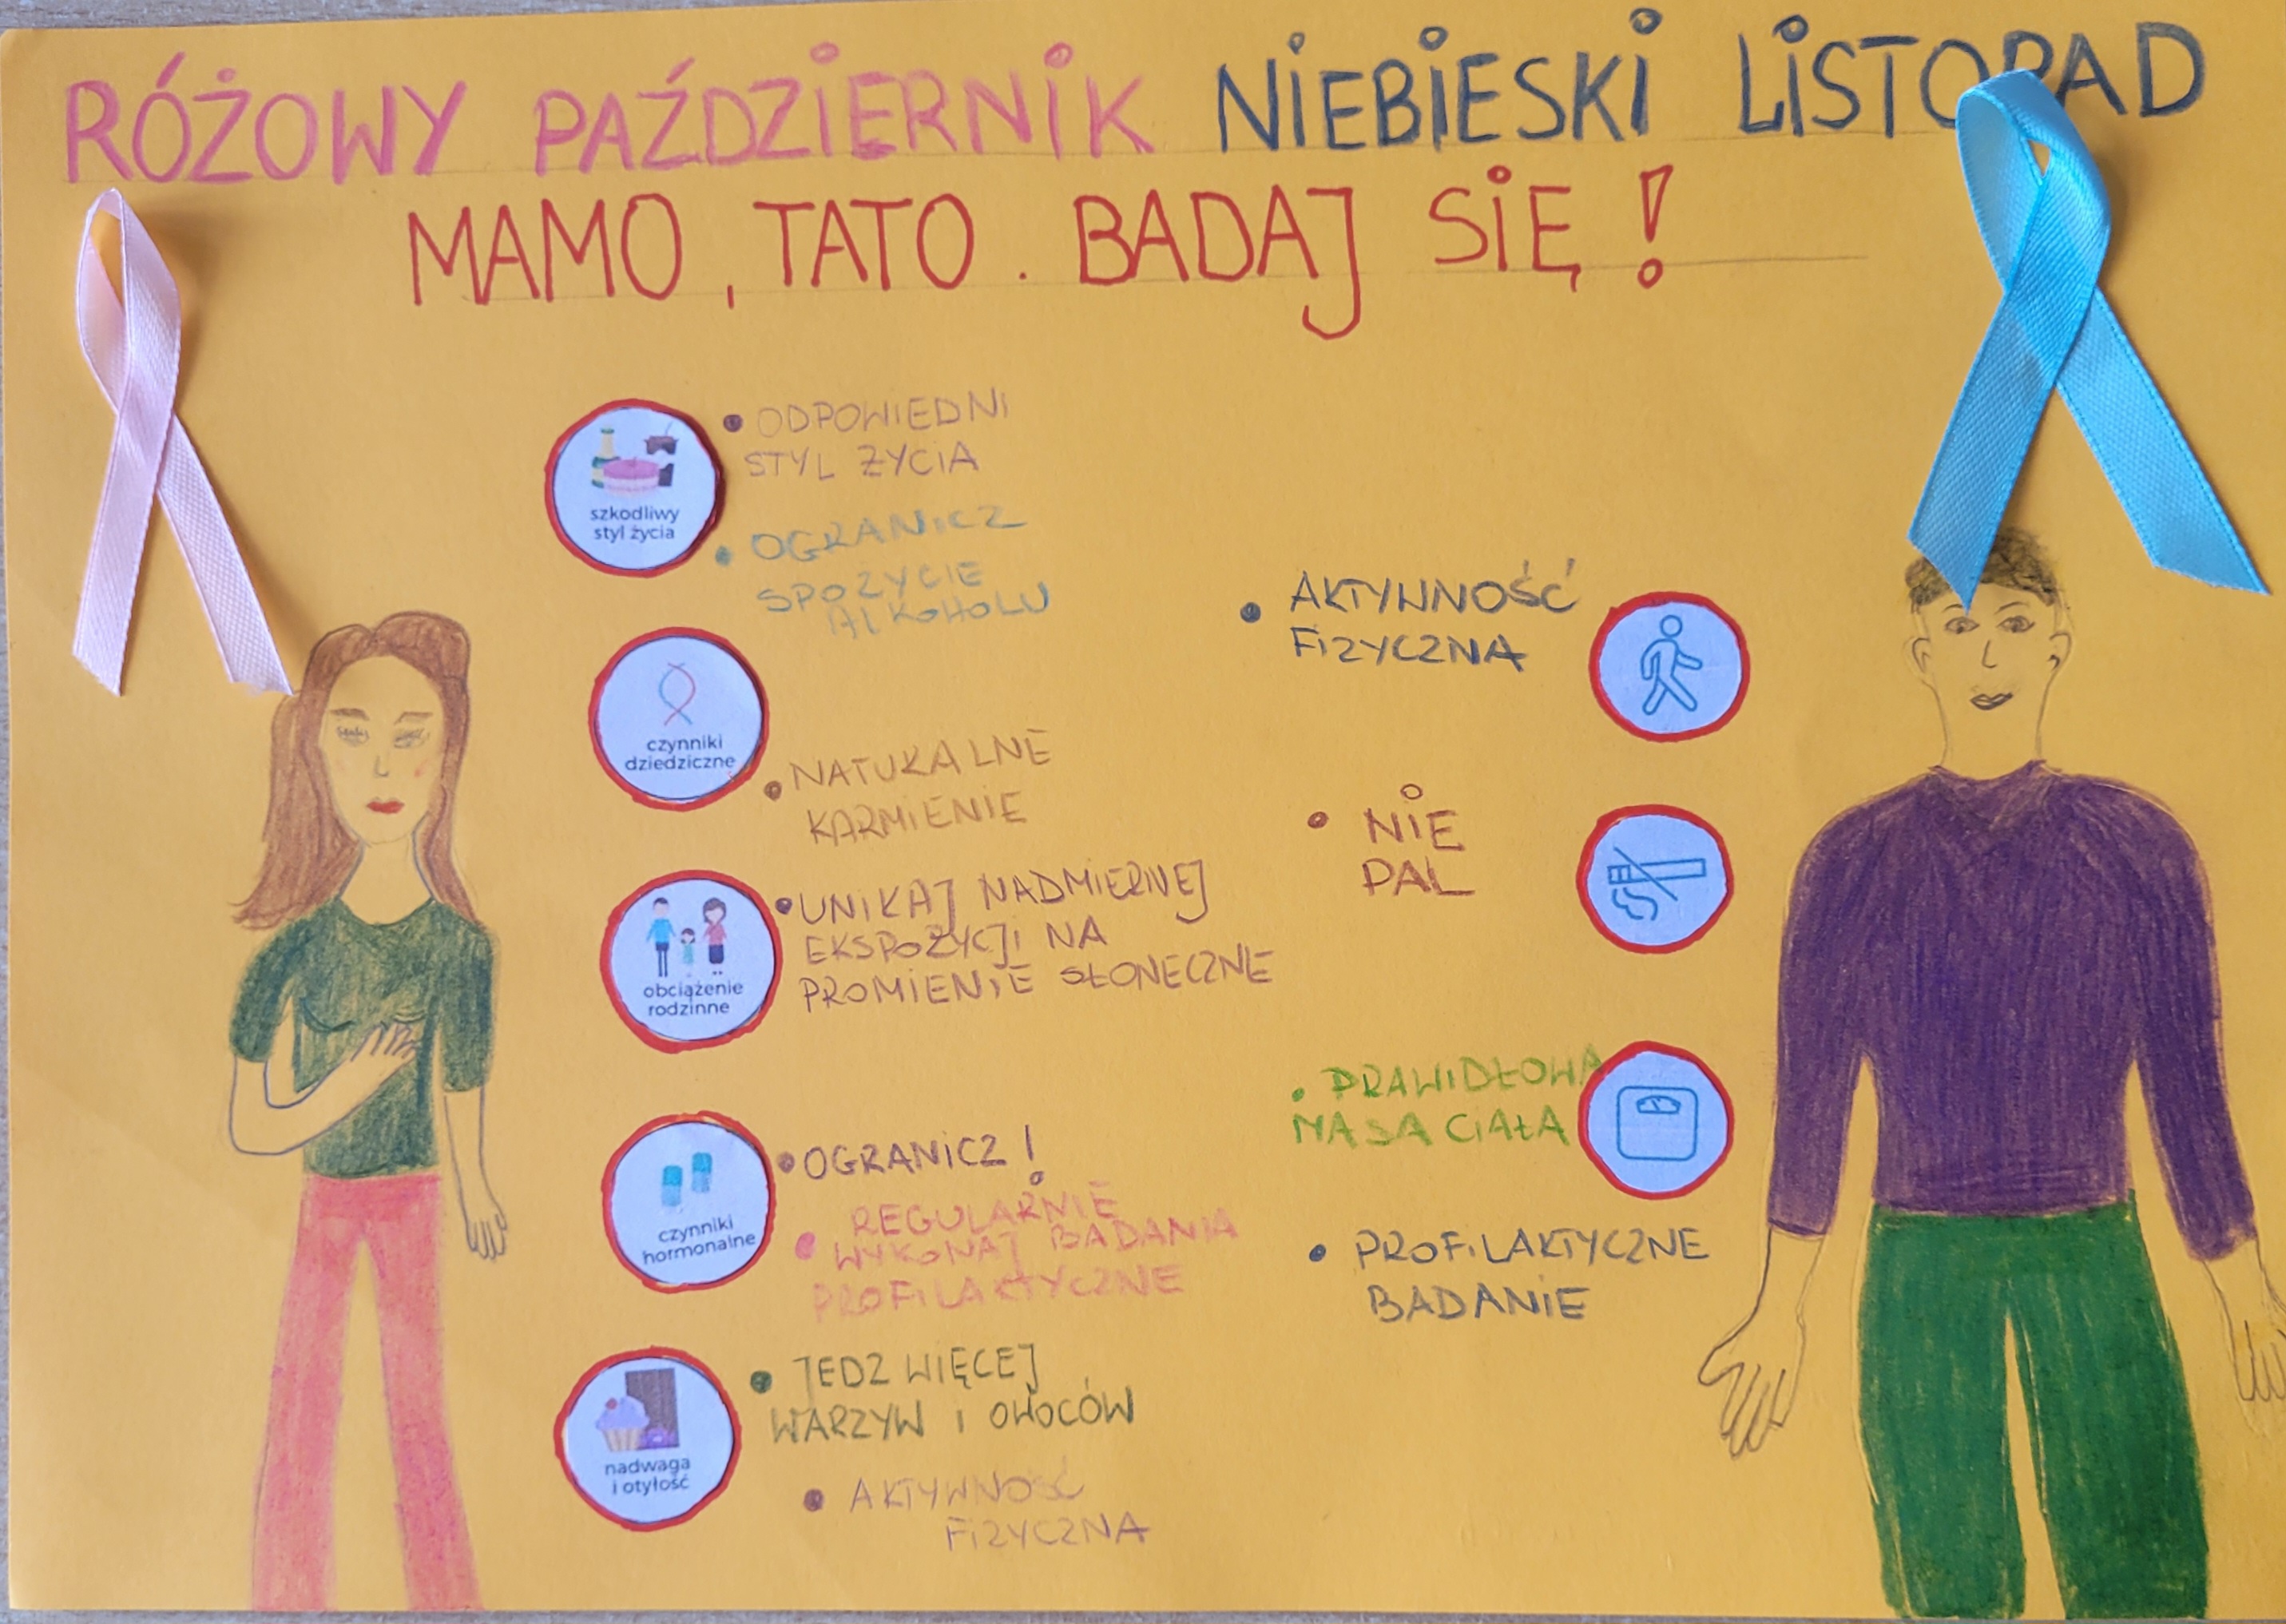 RÓŻOWY PAŹDZIERNIK NIEBIESKI LISTOPAD
MAMO, TATO. BADAJ SIĘ!
szkodliwy
styl życia
• ODPOWIEDNI
STYL ŻYCIA
• OGRANICZ
SPOŻYCIE
ALKOHOLU
czynniki
dziedziczne
• NATURALNE
KARMIENIE
obciążenie
rodzinne
• UNIKAJ NADMIERNEJ
EKSPOZYCJI NA
PROMIENIE SŁONECZNE
czynniki
hormonalne
• OGRANICZ!
• REGULARNIE
WYKONAJ BADANIA
PROFILAKTYCZNE
nadwaga
i otyłość
• JEDZ WIĘCEJ
WARZYW I OWOCÓW
• AKTYWNOŚĆ
FIZYCZNA
• AKTYWNOŚĆ
FIZYCZNA
• NIE
PAL
• PRAWIDŁOWA
MASA CIAŁA
• PROFILAKTYCZNE
BADANIE